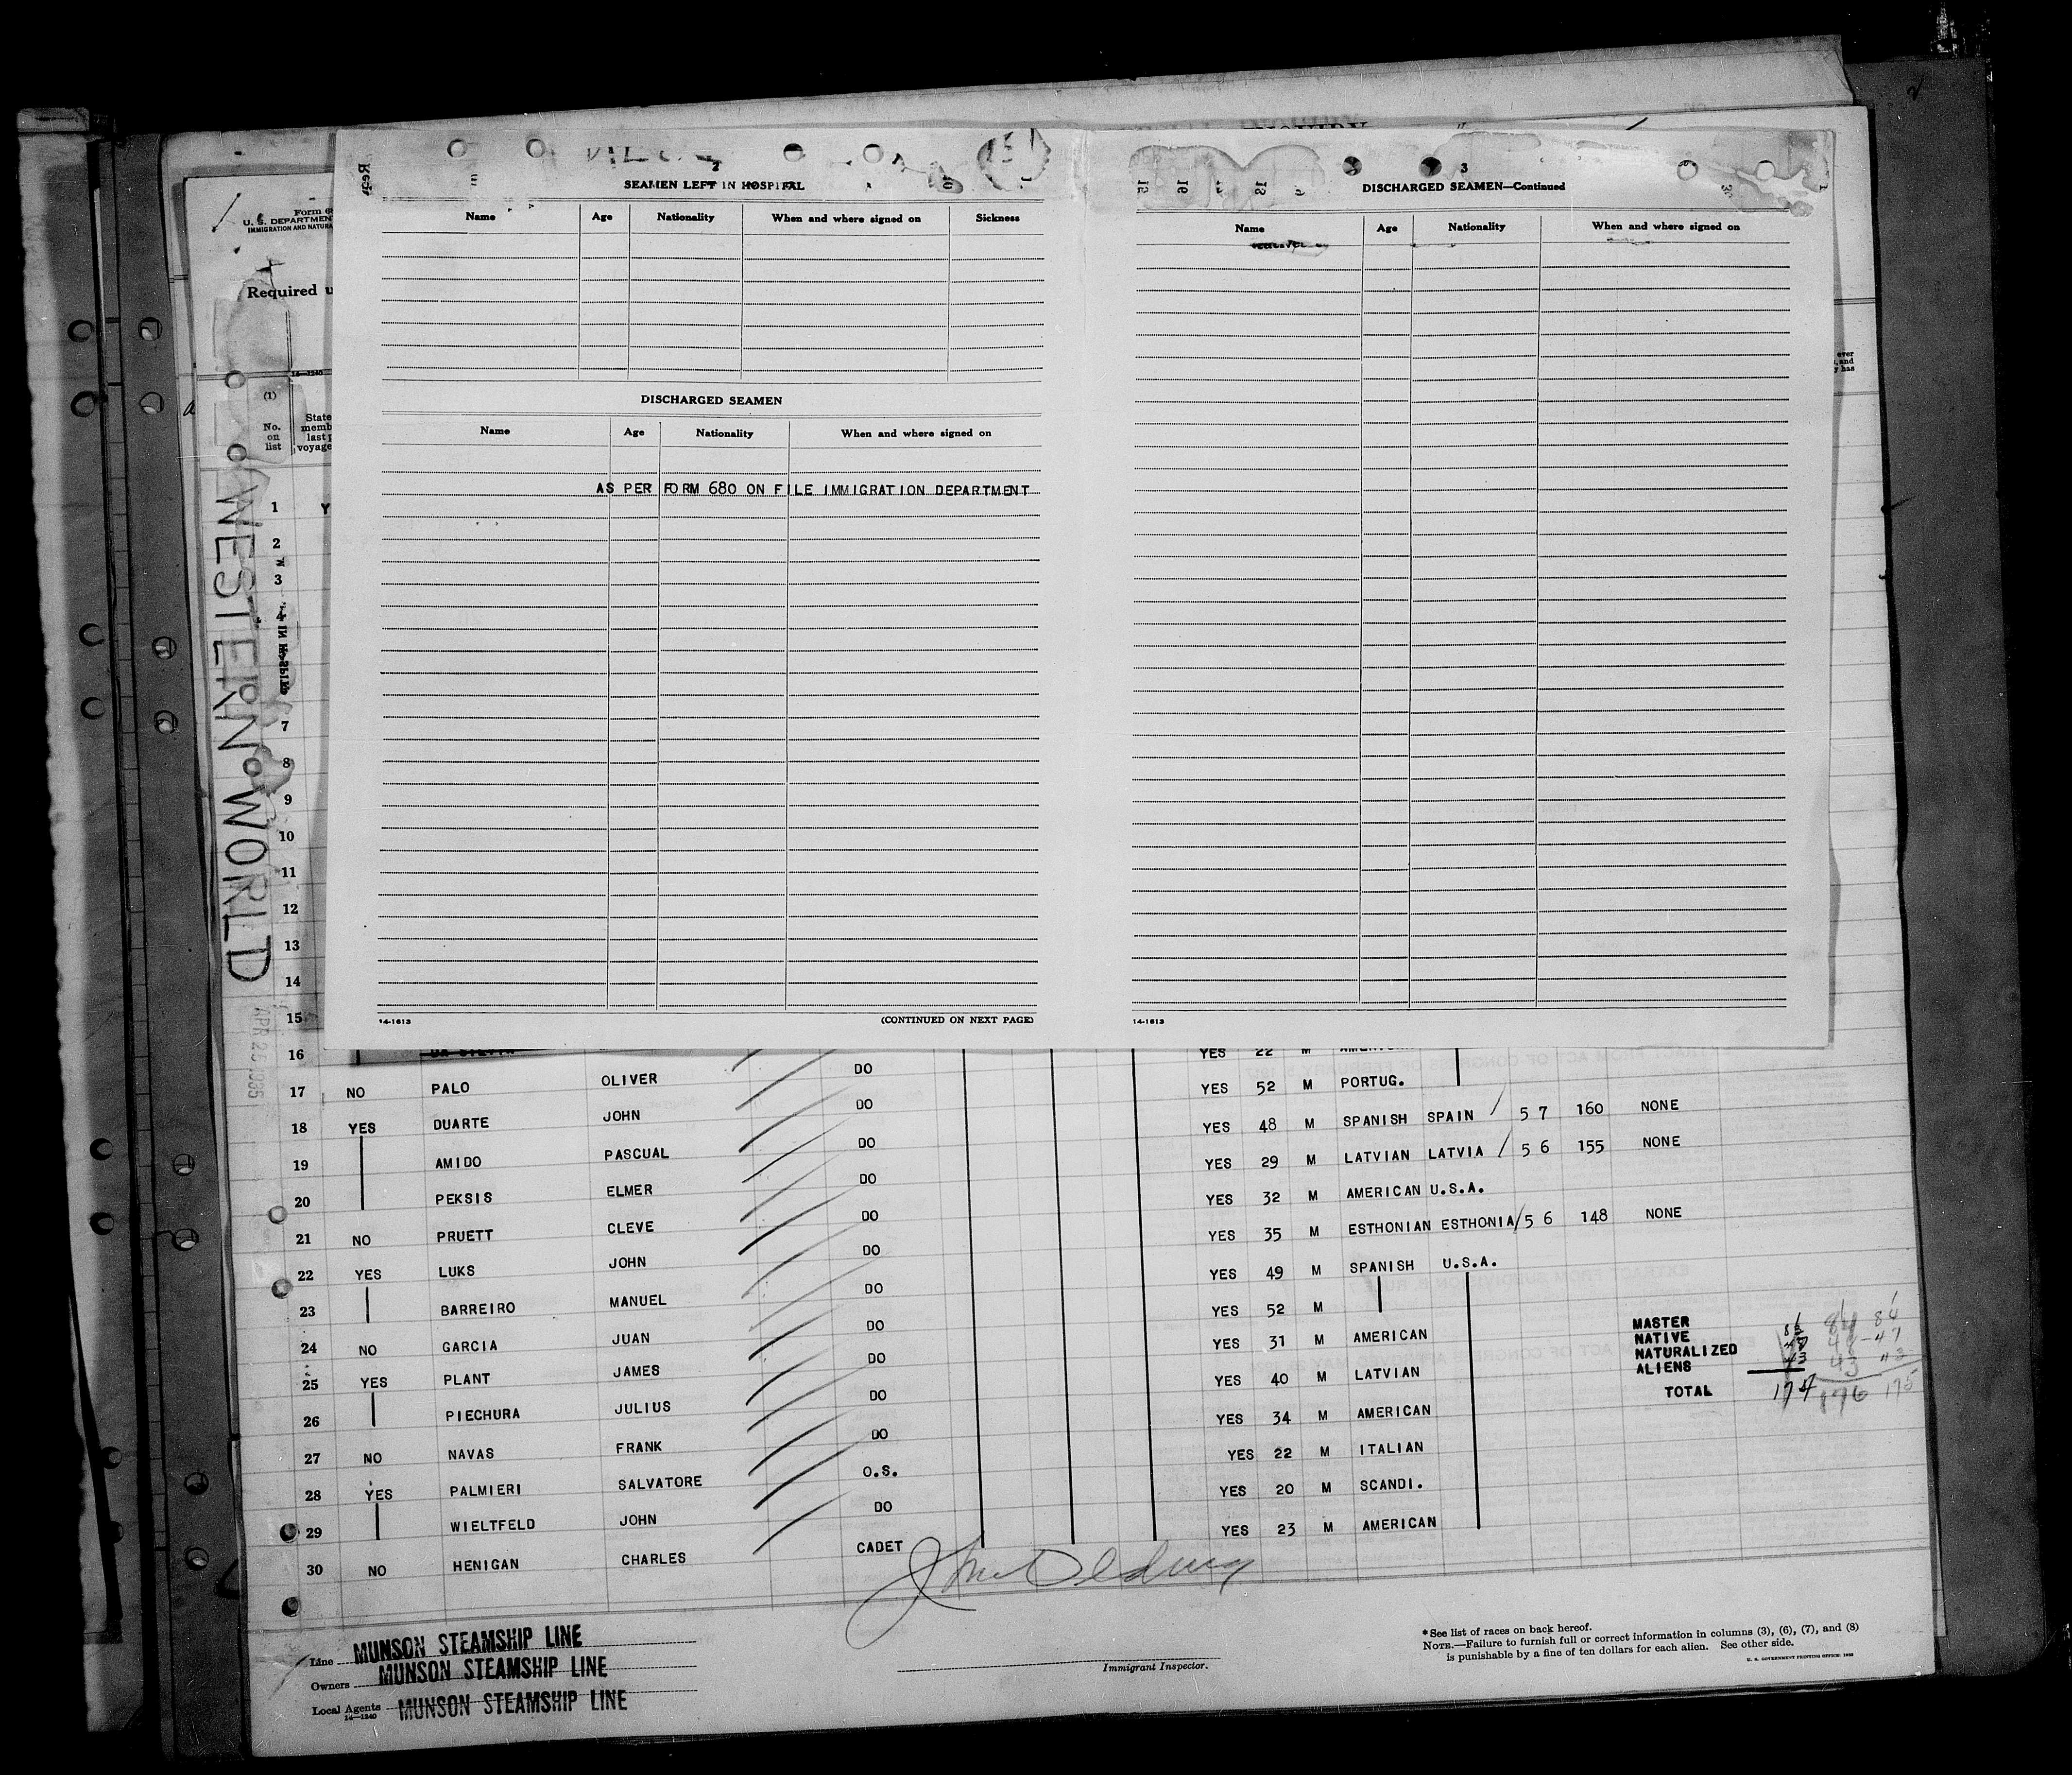 WESTERN WORLD
Form 6
U. S. DEPARTMEN
IMMIGRATION AND NATURA
Required u
14—1240
(1)
No. on list
State memb last p voyage
2
SEAMEN LEFT IN HOSPITAL
Name Age Nationality When and where signed on Sickness
DISCHARGED SEAMEN
Name Age Nationality When and where signed on
AS PER FORM 680 ON FILE IMMIGRATION DEPARTMENT
14-1613 (CONTINUED ON NEXT PAGE)
3
DISCHARGED SEAMEN—Continued
Name Age Nationality When and where signed on
14-1613
ever
, and
y has
1 Y
2
3
4
7
8
9
10
11
12
13
14
15
16 YES 22 M
17 NO PALO OLIVER DO YES 52 M PORTUG.
18 YES DUARTE JOHN DO YES 48 M SPANISH SPAIN 5 7 160 NONE
19 AMIDO PASCUAL DO YES 29 M LATVIAN LATVIA 5 6 155 NONE
20 PEKSIS ELMER DO YES 32 M AMERICAN U.S.A.
21 NO PRUETT CLEVE DO YES 35 M ESTHONIAN ESTHONIA 5 6 148 NONE
22 YES LUKS JOHN DO YES 49 M SPANISH U.S.A.
23 BARREIRO MANUEL DO YES 52 M
24 NO GARCIA JUAN DO YES 31 M AMERICAN
25 YES PLANT JAMES DO YES 40 M LATVIAN
26 PIECHURA JULIUS DO YES 34 M AMERICAN
27 NO NAVAS FRANK DO YES 22 M ITALIAN
28 YES PALMIERI SALVATORE O.S. YES 20 M SCANDI.
29 WIELTFELD JOHN DO YES 23 M AMERICAN
30 NO HENIGAN CHARLES CADET
MASTER 1
NATIVE 84 84
NATURALIZED 48-47
ALIENS 43 43 43
TOTAL 174 176 175
Line MUNSON STEAMSHIP LINE
Owners MUNSON STEAMSHIP LINE
Local Agents MUNSON STEAMSHIP LINE
14—1240
Immigrant Inspector.
*See list of races on back hereof.
NOTE.—Failure to furnish full or correct information in columns (3), (6), (7), and (8)
is punishable by a fine of ten dollars for each alien. See other side.